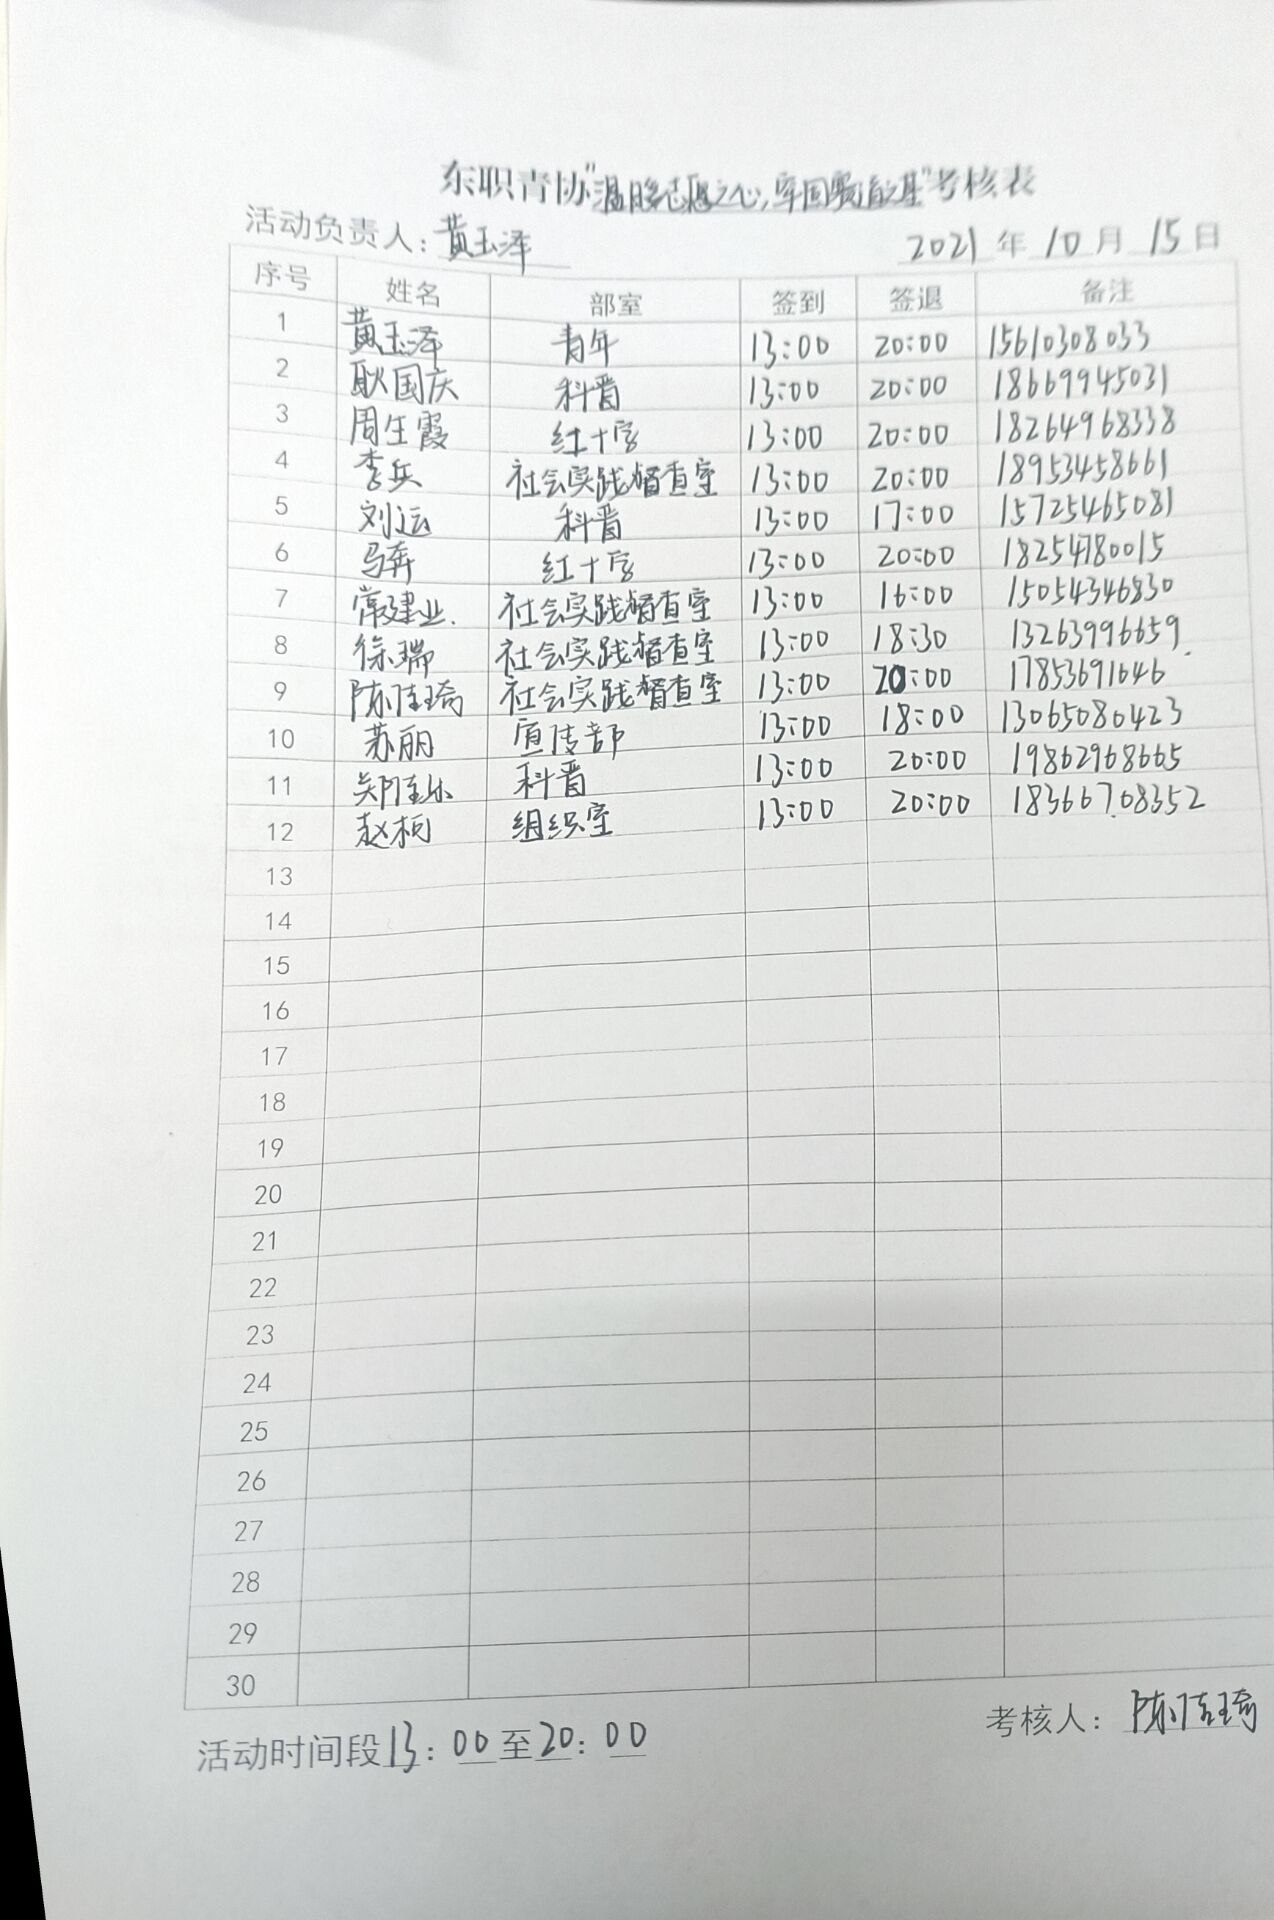 东职青协"温暖志愿之心，牢固赛道之基"考核表
活动负责人：黄玉泽 2021年10月15日
序号 姓名 部室 签到 签退 备注
1 黄玉泽 青年 13:00 20:00 15610308033
2 耿国庆 科晋 13:00 20:00 18669945031
3 周生霞 红十字 13:00 20:00 18264968338
4 李兵 社会实践督查室 13:00 20:00 18953458661
5 刘运 科晋 13:00 17:00 15725465081
6 马奔 红十字 13:00 20:00 18254780015
7 常建业. 社会实践督查室 13:00 16:00 15054346830
8 徐瑞 社会实践督查室 13:00 18:30 13263996659.
9 陈佳琦 社会实践督查室 13:00 20:00 17853691646
10 苏丽 宣传部 13:00 18:00 13065080423
11 郑佳乐 科晋 13:00 20:00 19862968665
12 赵柯 组织室 13:00 20:00 18366708352
13
14
15
16
17
18
19
20
21
22
23
24
25
26
27
28
29
30
活动时间段13：00至20：00 考核人：陈佳琦